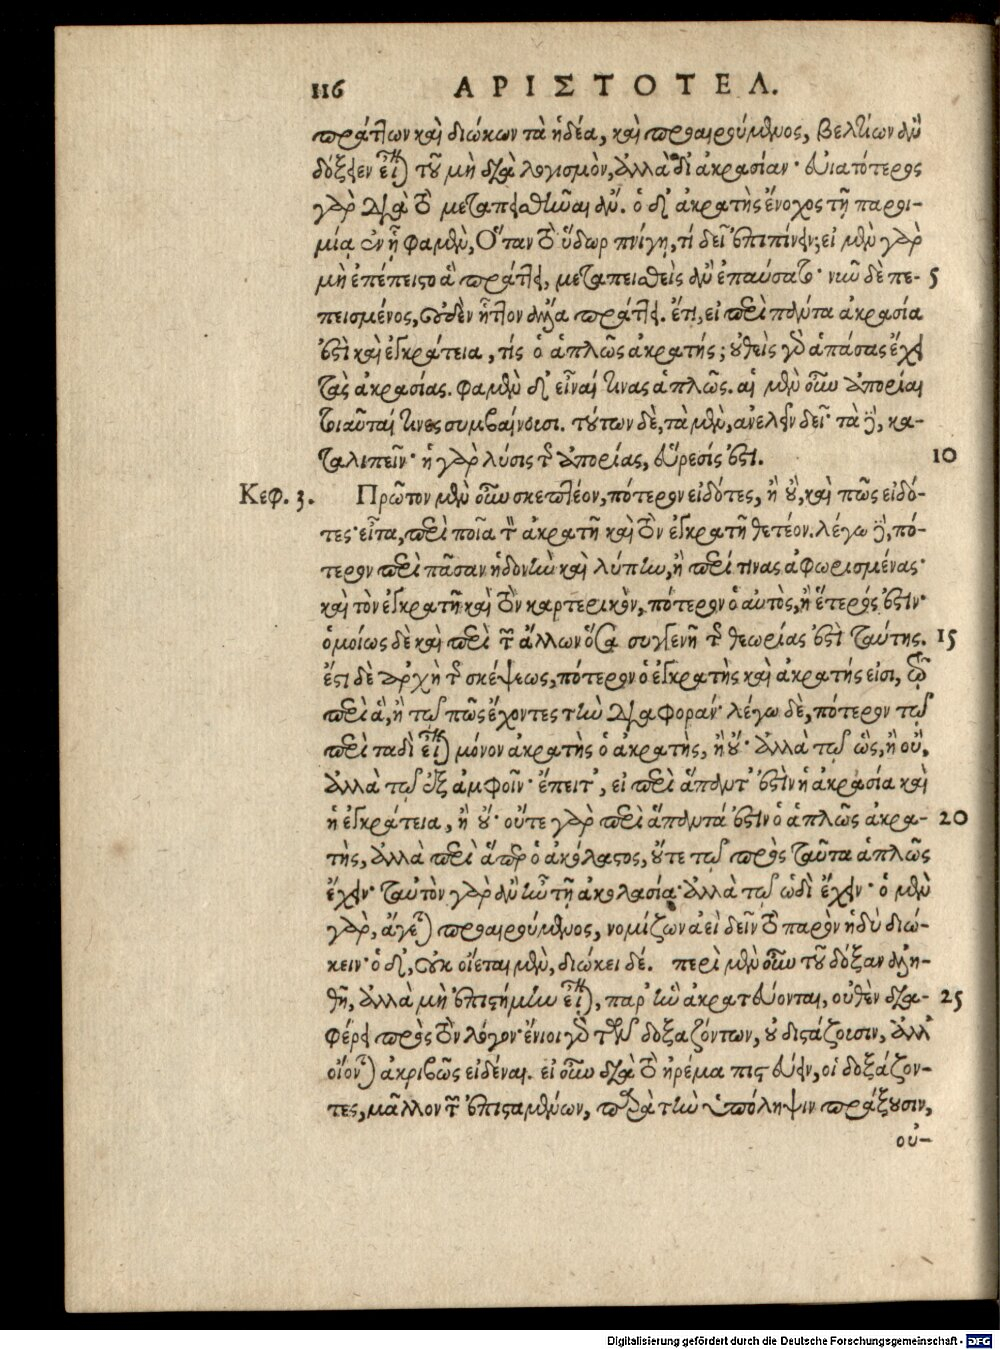 116 ΑΡΙΣΤΟΤΕΛ.
πράττων καὶ διώκων τὰ ἡδέα, καὶ προαιρούμενος, βελτίων ἂν
δόξειεν εἶναι τοῦ μὴ διὰ λογισμὸν, ἀλλὰ δι᾽ ἀκρασίαν· εὐιατότερος
γὰρ διὰ τὸ μεταπεισθῆναι ἄν. ὁ δ᾽ ἀκρατὴς ἔνοχος τῇ παροι-
μίᾳ ἐν ᾗ φαμὲν, Ὅταν τὸ ὕδωρ πνίγῃ, τί δεῖ ἐπιπίνειν; εἰ μὲν γὰρ
μὴ ἐπέπειστο ἃ πράττει, μεταπεισθεὶς ἂν ἐπαύσατο· νῦν δὲ πε- 5
πεισμένος, οὐδὲν ἧττον ἄλλα πράττει. ἔτι, εἰ περὶ πάντα ἀκρασία
ἐστὶ καὶ ἐγκράτεια, τίς ὁ ἁπλῶς ἀκρατής; οὐθεὶς γὰρ ἁπάσας ἔχει
τὰς ἀκρασίας. φαμὲν δ᾽ εἶναί τινας ἁπλῶς. αἱ μὲν οὖν ἀπορίαι
τοιαῦταί τινες συμβαίνουσι. τούτων δὲ, τὰ μὲν, ἀνελεῖν δεῖ· τὰ δὲ, κα-
ταλιπεῖν· ἡ γὰρ λύσις τῆς ἀπορίας, εὕρεσίς ἐστι. 10
Κεφ. 3. Πρῶτον μὲν οὖν σκεπτέον, πότερον εἰδότες, ἢ οὔ, καὶ πῶς εἰδό-
τες· εἶτα, περὶ ποῖα τὸν ἀκρατῆ καὶ τὸν ἐγκρατῆ θετέον. λέγω δὲ, πό-
τερον περὶ πᾶσαν ἡδονὴν καὶ λύπην, ἢ περί τινας ἀφωρισμένας·
καὶ τὸν ἐγκρατῆ καὶ τὸν καρτερικὸν, πότερον ὁ αὐτὸς, ἢ ἕτερός ἐστιν·
ὁμοίως δὲ καὶ περὶ τῶν ἄλλων ὅσα συγγενῆ τῆς θεωρίας ἐστὶ ταύτης. 15
ἔστι δὲ ἀρχὴ τῆς σκέψεως, πότερον ὁ ἐγκρατὴς καὶ ἀκρατής εἰσι, τῷ
περὶ ἃ, ἢ τῷ πῶς ἔχοντες τὴν διαφοράν· λέγω δὲ, πότερον τῷ
περὶ ταδὶ εἶναι μόνον ἀκρατὴς ὁ ἀκρατὴς, ἢ οὔ· ἀλλὰ τῷ ὡς, ἢ οὔ,
ἀλλὰ τῷ ἐξ ἀμφοῖν· ἔπειτ᾽, εἰ περὶ ἅπαντ᾽ ἐστὶν ἡ ἀκρασία καὶ
ἡ ἐγκράτεια, ἢ οὔ· οὔτε γὰρ περὶ ἅπαντά ἐστιν ὁ ἁπλῶς ἀκρα- 20
τὴς, ἀλλὰ περὶ ἅπερ ὁ ἀκόλαστος, οὔτε τῷ πρὸς ταῦτα ἁπλῶς
ἔχειν· ταὐτὸν γὰρ ἂν ἦν τῇ ἀκολασίᾳ· ἀλλὰ τῷ ὡδὶ ἔχειν· ὁ μὲν
γὰρ, ἄγεται προαιρούμενος, νομίζων ἀεὶ δεῖν τὸ παρὸν ἡδὺ διώ-
κειν· ὁ δ᾽, οὐκ οἴεται μὲν, διώκει δέ. περὶ μὲν οὖν τοῦ δόξαν ἀλη-
θῆ, ἀλλὰ μὴ ἐπιστήμην εἶναι, παρ᾽ ἣν ἀκρατεύονται, οὐθὲν δια- 25
φέρει πρὸς τὸν λόγον· ἔνιοι γὰρ τῶν δοξαζόντων, οὐ διστάζουσιν, ἀλλ᾽
οἴονται ἀκριβῶς εἰδέναι. εἰ οὖν διὰ τὸ ἠρέμα πιστεύειν, οἱ δοξάζον-
τες, μᾶλλον τῶν ἐπισταμένων, παρὰ τὴν ὑπόληψιν πράξουσιν,
οὐ-
Digitalisierung gefördert durch die Deutsche Forschungsgemeinschaft - DFG